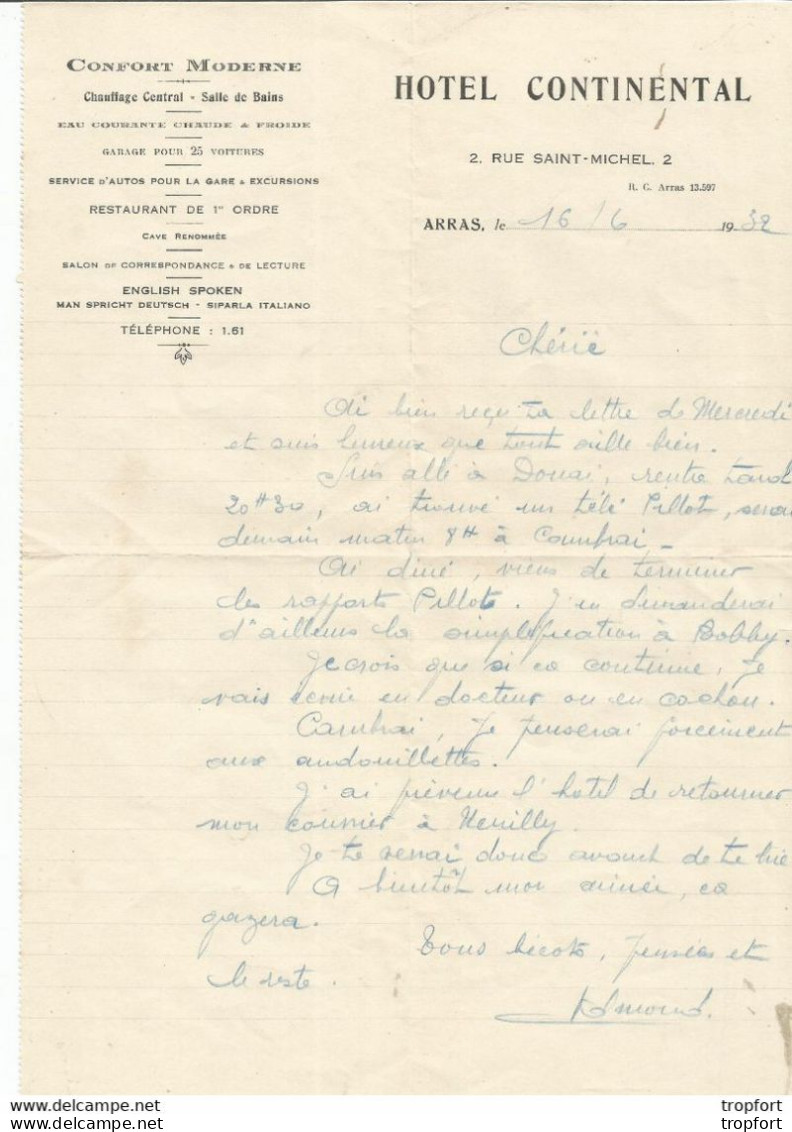 CONFORT MODERNE
Chauffage Central - Salle de Bains
EAU COURANTE CHAUDE & FROIDE
GARAGE POUR 25 VOITURES
SERVICE D'AUTOS POUR LA GARE & EXCURSIONS
RESTAURANT DE 1er ORDRE
CAVE RENOMMÉE
SALON DE CORRESPONDANCE & DE LECTURE
ENGLISH SPOKEN
MAN SPRICHT DEUTSCH - SIPARLA ITALIANO
TÉLÉPHONE : 1.61
HOTEL CONTINENTAL
2, RUE SAINT-MICHEL, 2
R. C. Arras 13.597
ARRAS, le 16/6 1932
Chérie
Ai bien reçu ta lettre de Mercredi
et suis heureux que tout aille bien.
Suis allé à Douai, rentré tard
20H30, ai trouvé un télé Pillot, serai
demain matin 8H à Cambrai_
Ai diné, viens de terminer
les rapports Pillots. J'en demanderai
d'ailleurs la simplification à Bobby.
Je crois que si ca continue, je
vais écrire en docteur ou en cochon.
Cambrai, je penserai forcément
aux andouillettes.
J'ai prévenu l'hotel de retourner
mon courrier à Neuilly.
Je te verrai donc avant de te lire
A bientôt mon aimée, ca
gazera.
Tous bécots, pensées et
le reste.
Edmond.
tropfort
tropfort
tropfort
tropfort